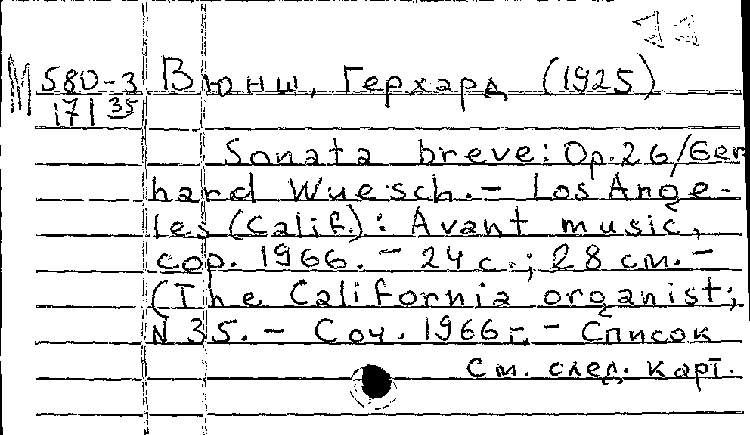 М 580-3 Вюнш, Герхард (1925)
171 35
Sonata breve: Op.26/Ger
hard Wuesch. – Los Ange-
les (Calif.): Avant music,
cop. 1966. – 24 с.; 28 см. –
(The California organist;
N 35. – Соч. 1966 г. – Список
См. след. карт.